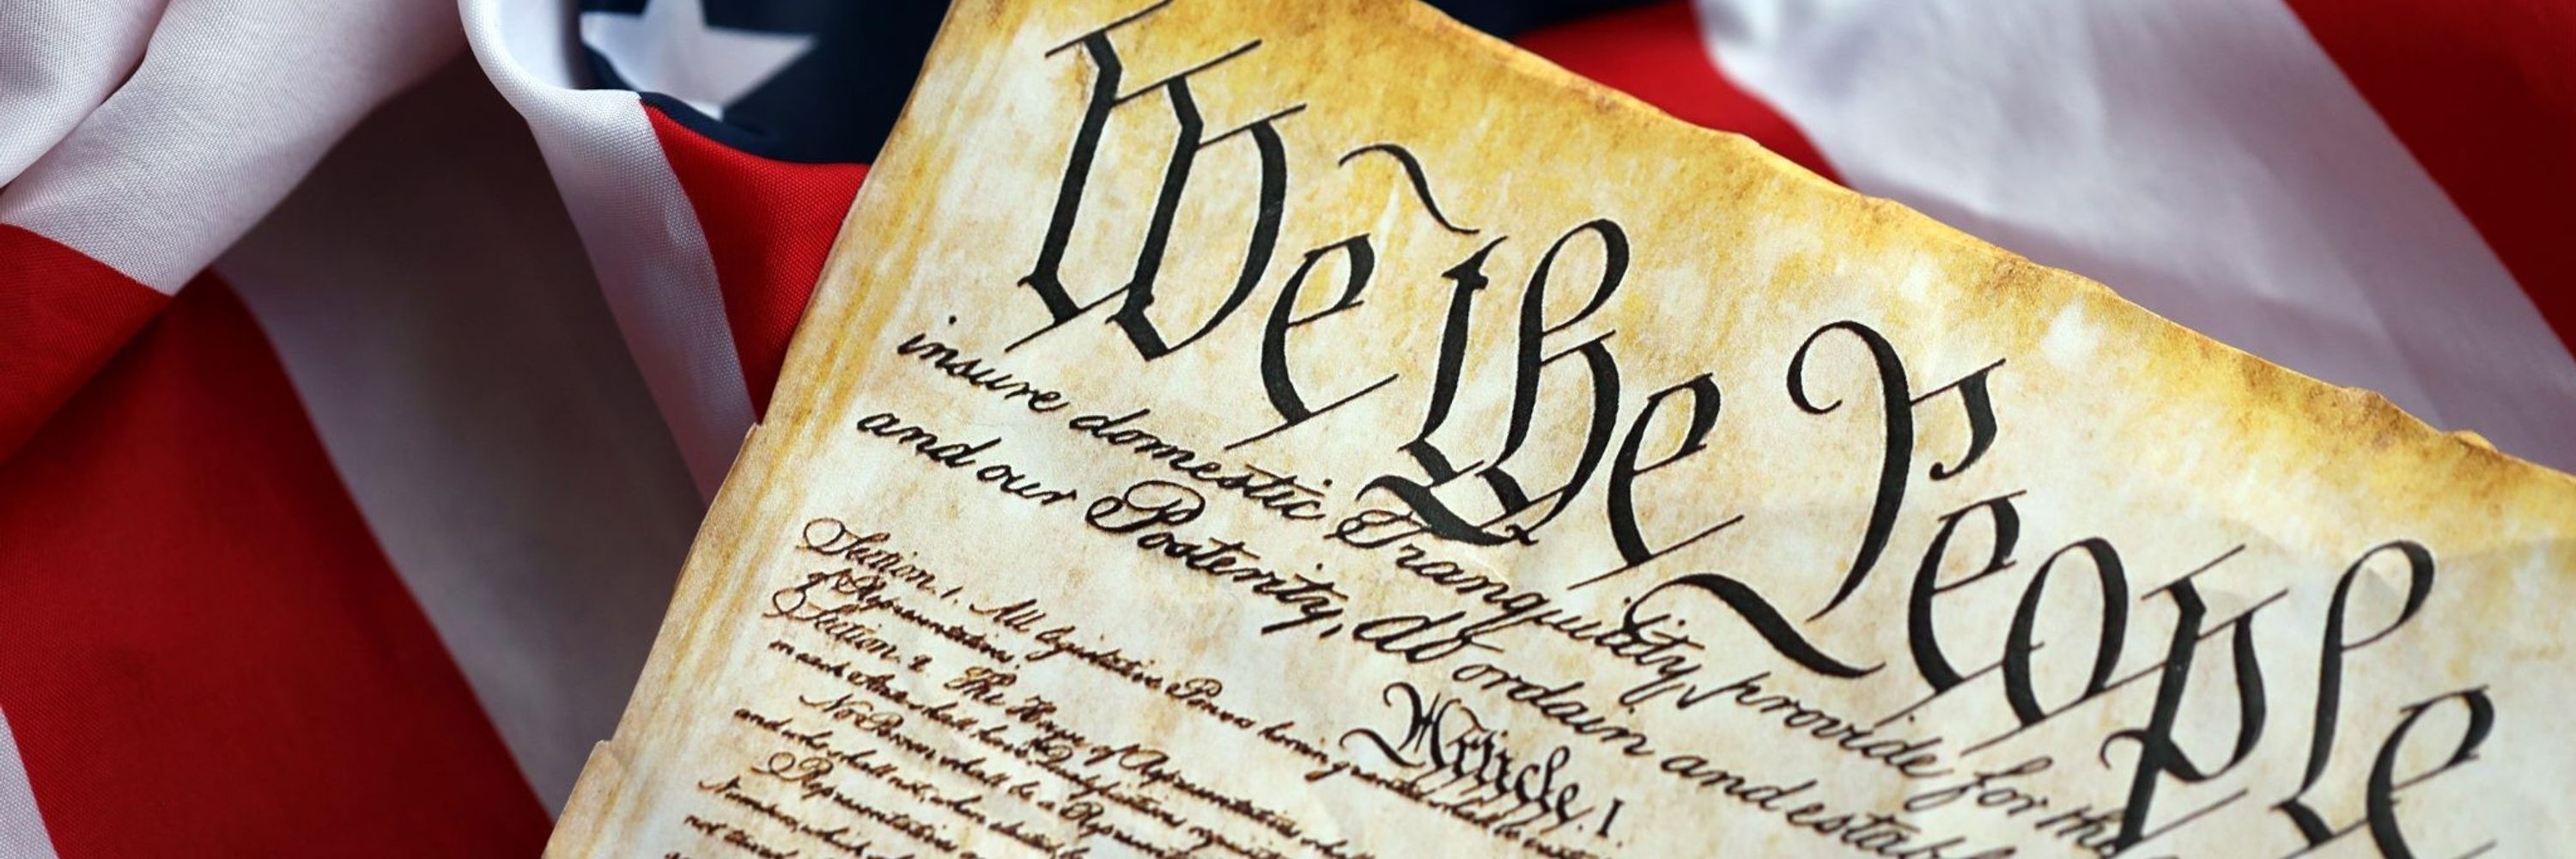 We the People
insure domestic Tranquility, provide for the
and our Posterity, do ordain and establ
Article. I
Section. 1. All legislative Powers herein granted shall be
of Representatives.
Section. 2. The House of Representatives
in each State shall have the Qualifications
No Person shall be a Representative
and who shall not, when elected
Representatives
Numbers, which
not